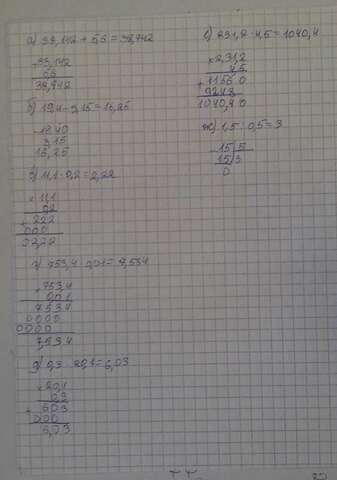 а) 33,142 + 5,6 = 38,742
+ 33,142
5,6
38,742
б) 19,4 - 3,15 = 16,25
- 19,40
3,15
16,25
в) 11,1 · 0,2 = 2,22
× 11,1
0,2
+ 222
000
02,22
г) 753,4 · 0,01 = 7,534
× 753,4
0,01
7534
0000
0000
7,534
д) 0,3 · 20,1 = 6,03
× 20,1
0,3
+ 603
000
6,03
е) 231,2 · 4,5 = 1040,4
× 231,2
4,5
+ 1156 0
9248
1040,40
ж) 1,5 : 0,5 = 3
- 15 | 5
15 | 3
0